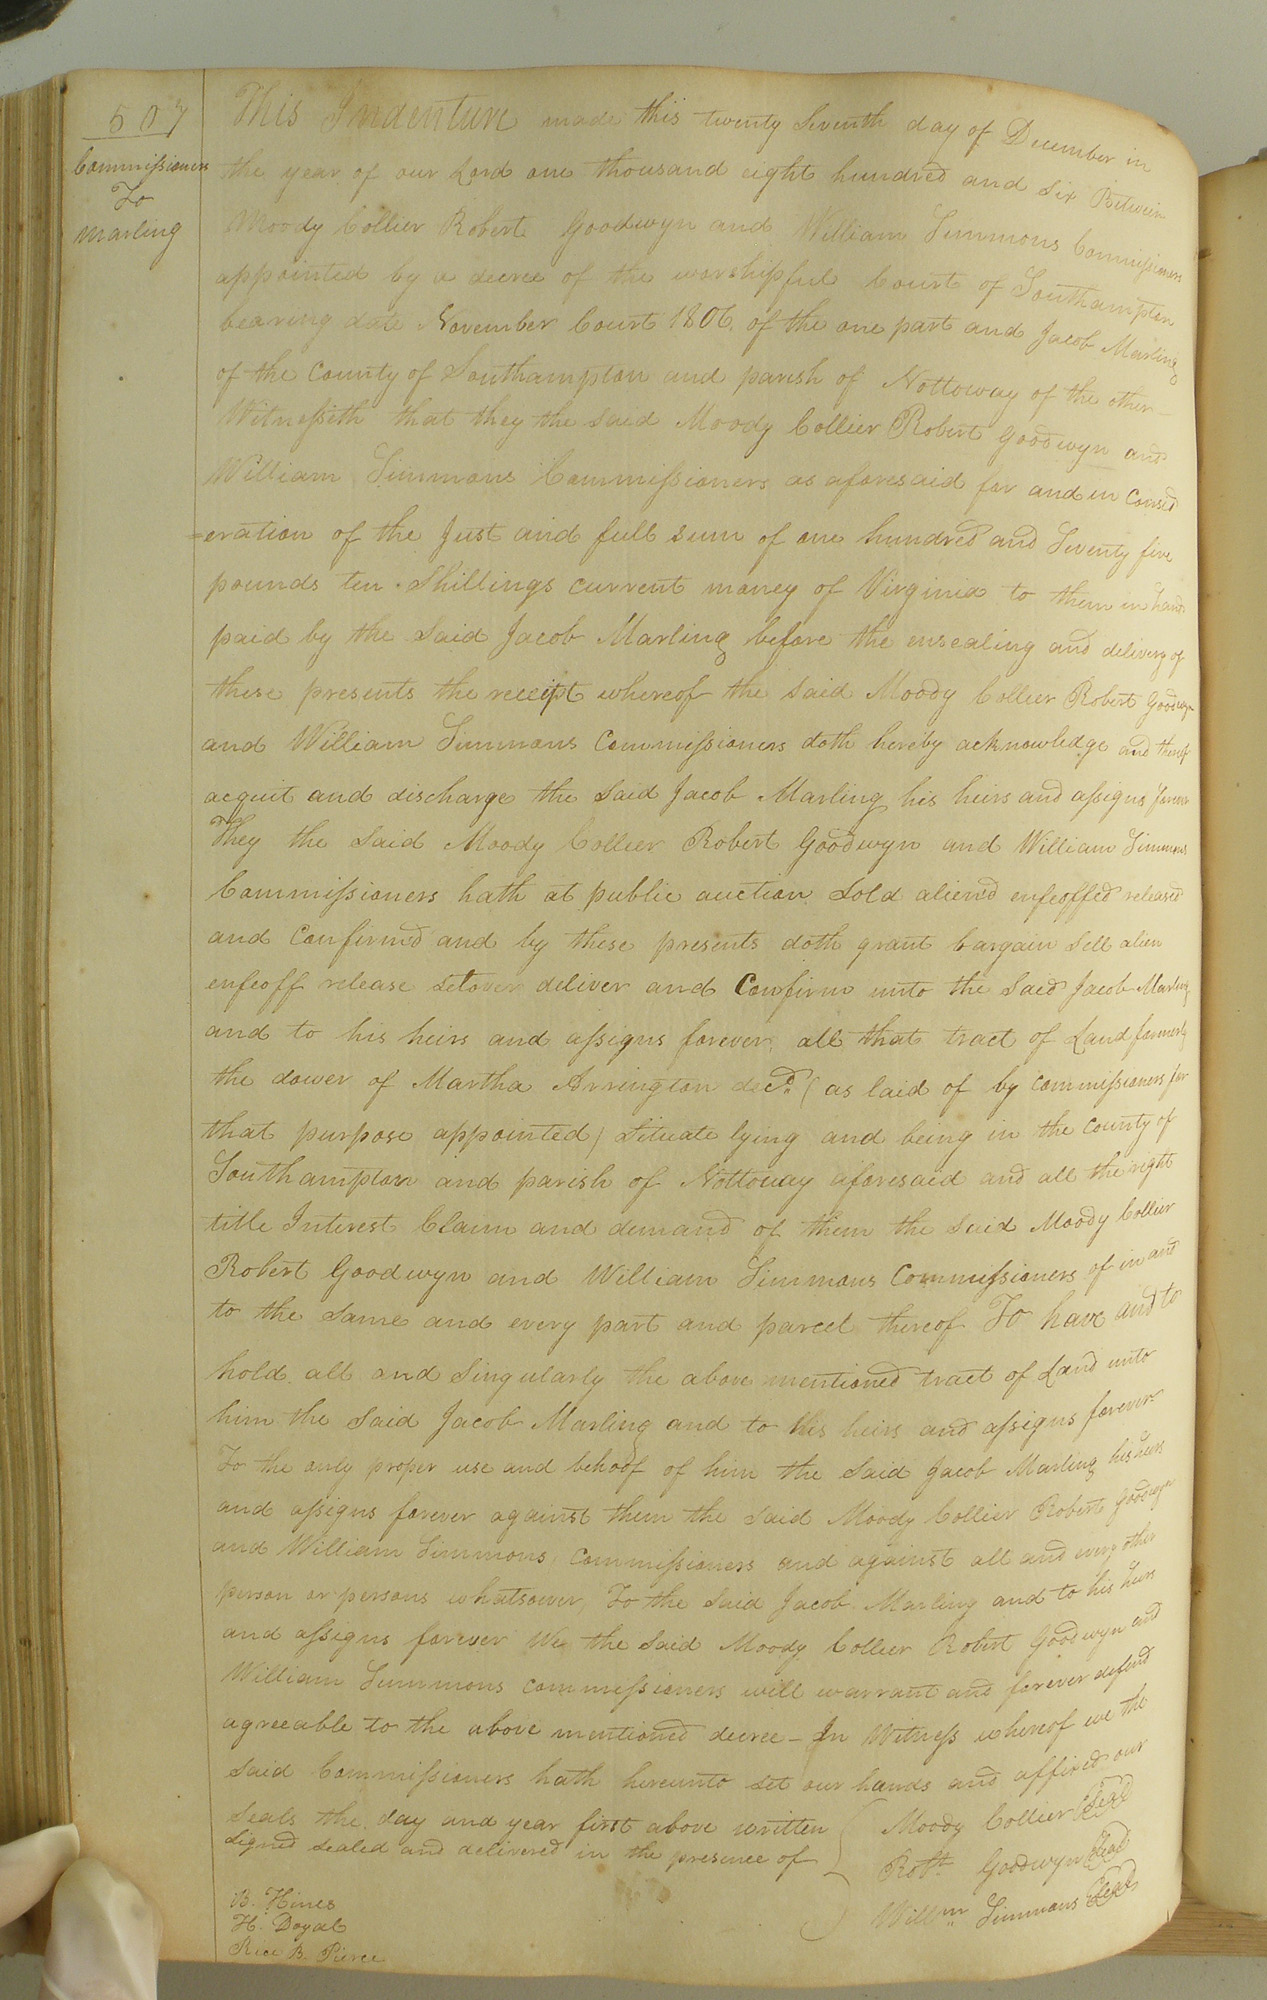 507
Commissioners
To
Marling
This Indenture made this twenty Seventh day of December in
the year of our Lord one thousand eight hundred and six Between
Moody Collier Robert Goodwyn and William Simmons Commissioners
appointed by a decree of the worshipful Court of Southampton
bearing date November Court 1806. of the one part and Jacob Marling
of the County of Southampton and parish of Nottoway of the other
Witnesseth that they the said Moody Collier Robert Goodwyn and
William Simmons Commissioners as aforesaid for and in Consid
=eration of the Just and full sum of one hundred and Twenty five
pounds ten Shillings current money of Virginia to them in hand
paid by the said Jacob Marling before the ensealing and delivery of
these presents the receipt whereof the said Moody Collier Robert Goodwyn
and William Simmons Commissioners doth hereby acknowledge and
acquit and discharge the said Jacob Marling his heirs and assigns forever
They the said Moody Collier Robert Goodwyn and William Simmons
Commissioners hath at public auction Sold alien'd enfeoffed released
and Confirmd and by these presents doth grant bargain Sell alien
enfeoff release setover deliver and Confirm unto the said Jacob Marling
and to his heirs and assigns forever, all that tract of Land formerly
the dower of Martha Arrington decd. (as laid of by commissioners for
that purpose appointed) Situate lying and being in the County of
Southampton and parish of Nottoway aforesaid and all the right
title Interest Claim and demand of them the said Moody Collier
Robert Goodwyn and William Simmons Commissioners of in and
to the same and every part and parcel thereof To have and to
hold all and Singularly the above mentioned tract of Land unto
him the said Jacob Marling and to his heirs and assigns forever
To the only proper use and behoof of him the Said Jacob Marling his heirs
and assigns forever against them the said Moody Collier Robert Goodwyn
and William Simmons Commissioners and against all and every other
person or persons whatsoever, To the said Jacob Marling and to his heirs
and assigns forever We the Said Moody Collier Robert Goodwyn and
William Simmons commissioners will warrant and forever defend
agreeable to the above mentioned decree - In Witness whereof we the
said Commissioners hath hereunto set our hands and affixed our
Seals the day and year first above written Moody Collier Seal
Signed sealed and delivered in the presence of Robt. Goodwyn Seal
Willm. Simmons Seal
B. Hines
H. Doyal
Rice B. Pierce